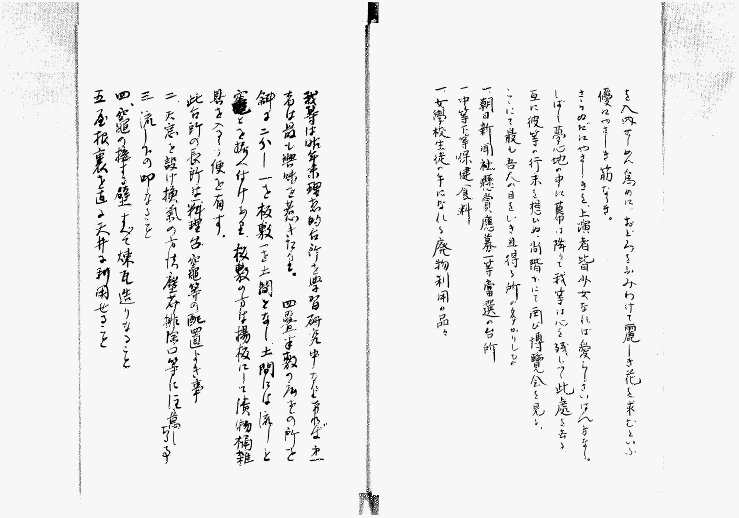 を入内せしめん為めに、おどろをふみわけて麗しき花を求むといふ
優にやさしき筋なりき。
さらぬだにやさしきを、上演者皆少女なれば愛らしさいはん方なし。
しばし夢心地の中に幕は降りて我等は心を残して此處を去る
互に彼等の行末を想ひぬ、尚階下にて再び博覧会を見る、
ここにて最も吾人の目をひき且得る所の多かりしもの
一朝日新聞社懸賞應募一等當選の台所
一中等下等保健食料
一女學校生徒の手になれる廃物利用の品々
我等は昨年来理想的台所を學習研究中なりければ此
者は最も興味を惹きたりき。四疊半敷の広さの所を
斜に二分し一を板敷一を土間となし、土間には流しと
竈とを据へ付けあり、板敷の方は揚板にして漬物桶雑
具を入るゝ便を有す。
此台所の長所は料理台、竈等の配置よき事
二 天窓を設け換氣の方法塵芥排除口等に注意しある事
三 流し下の叩なること
四、竈の接する壁すべて煉瓦造りなること
五 屋根裏を直ちに天井に利用せること